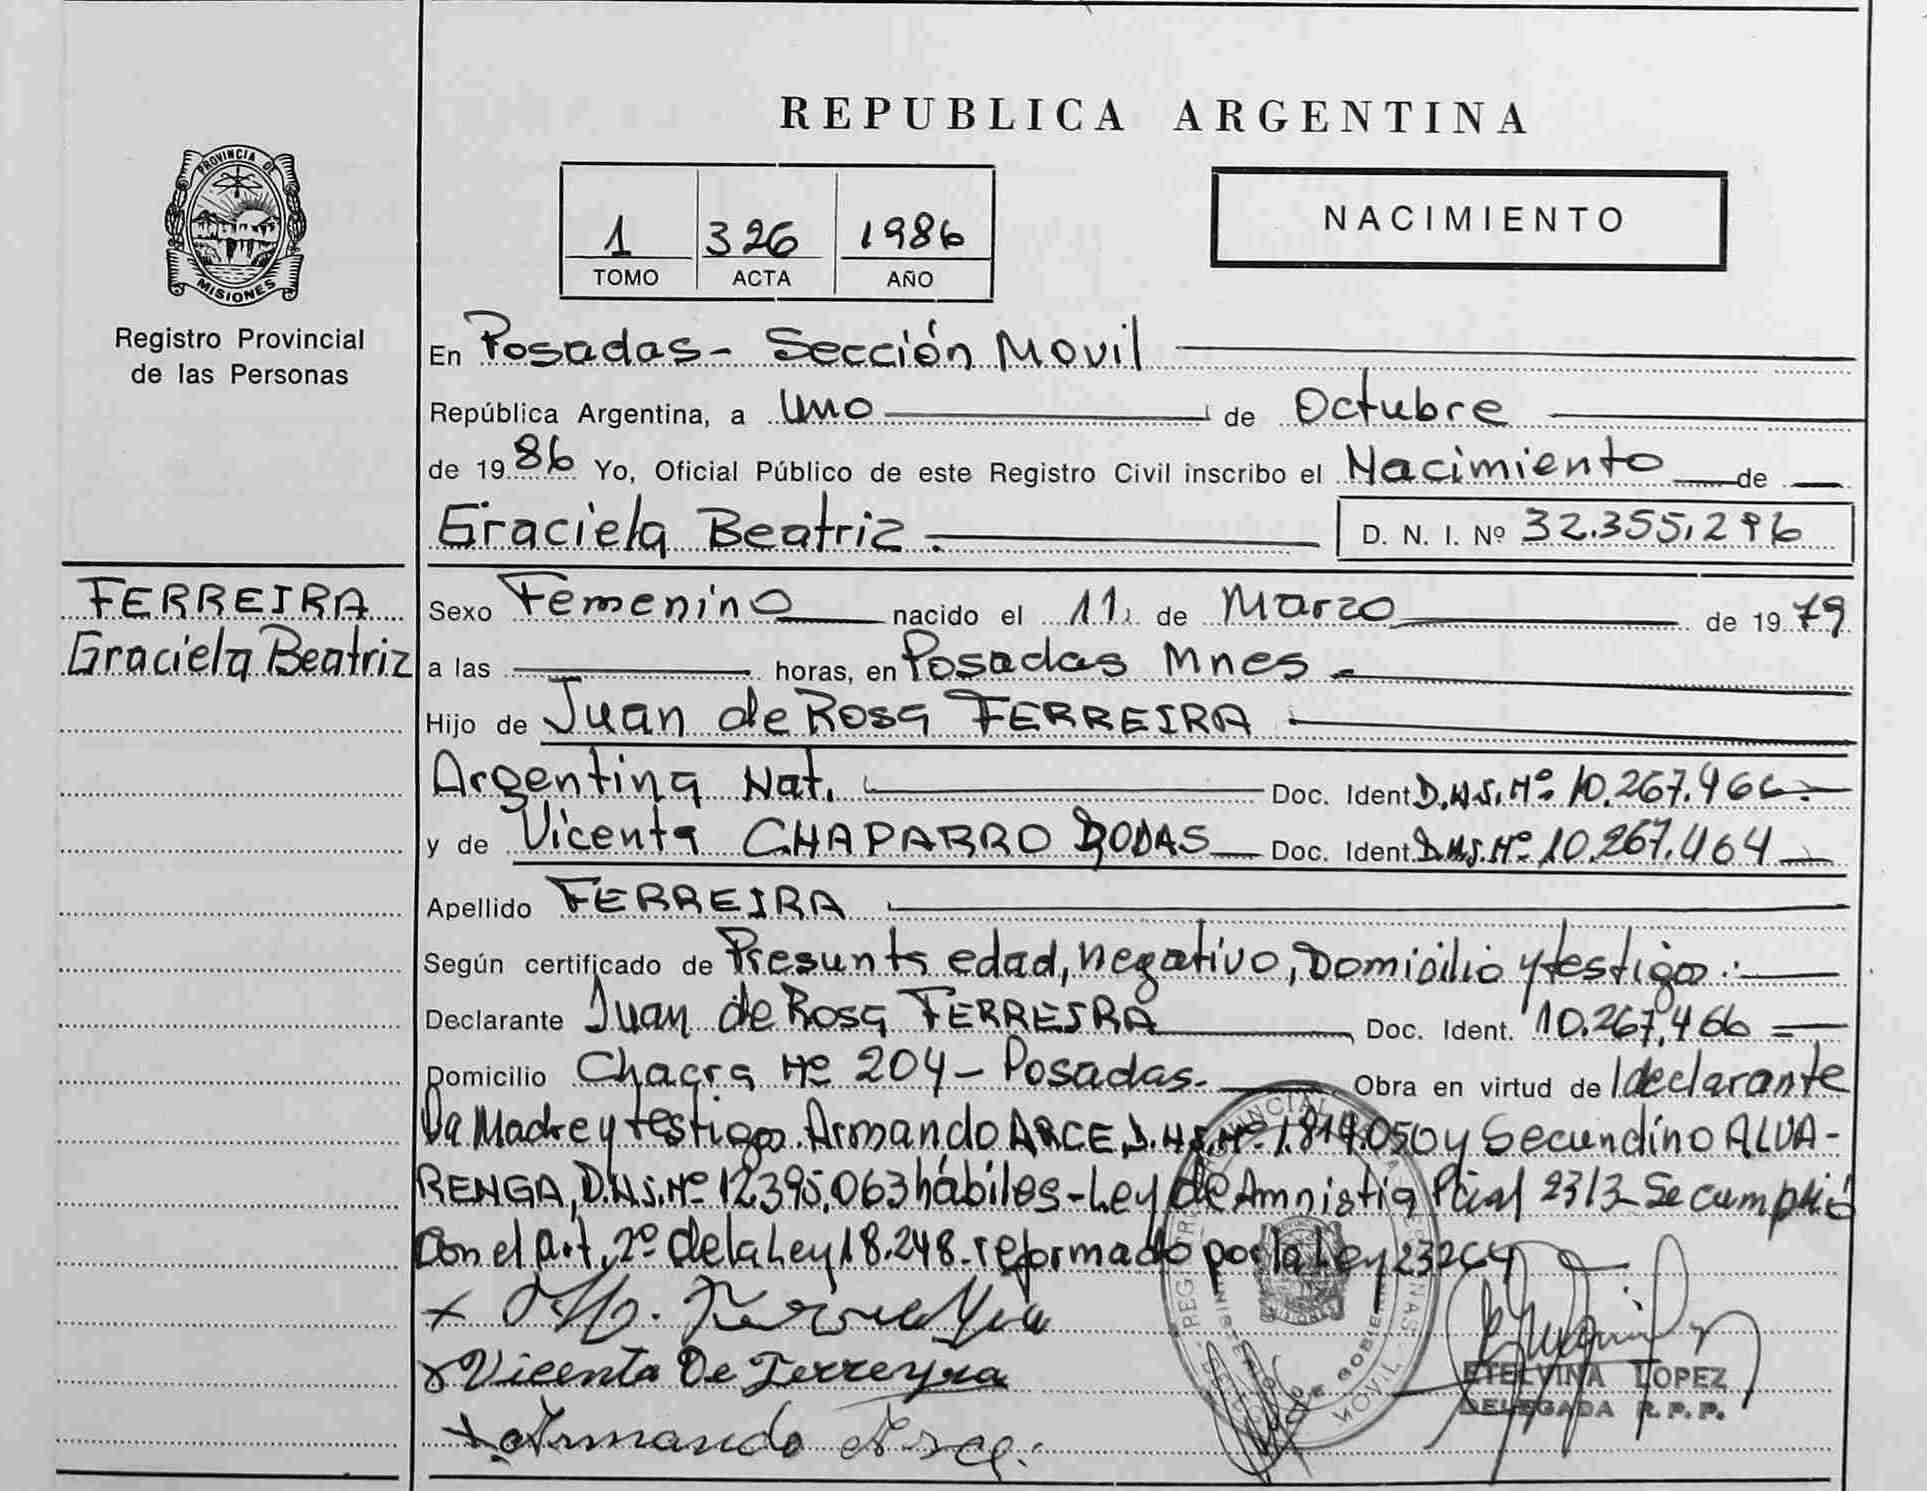 REPUBLICA ARGENTINA
PROVINCIA DE
MISIONES
Registro Provincial
de las Personas
1 326 1986
TOMO ACTA AÑO
NACIMIENTO
En Posadas - Sección Movil
República Argentina, a Uno de Octubre
de 1986 Yo, Oficial Público de este Registro Civil inscribo el Nacimiento de
Graciela Beatriz. D. N. I. Nº 32.355.296
FERREIRA
Graciela Beatriz
Sexo Femenino nacido el 11 de Marzo de 1979
a las horas, en Posadas Mnes
Hijo de Juan de Rosa FERREIRA
Argentina Nat. Doc. Ident D.N.I. Nº 10.267.466
y de Vicenta CHAPARRO RODAS Doc. Ident D.N.I. Nº 10.267.464
Apellido FERREIRA
Según certificado de Presunta edad, negativo, Domicilio y testigos.
Declarante Juan de Rosa FERREIRA Doc. Ident. 10.267.466
Domicilio Chacra Nº 204 - Posadas. Obra en virtud de declarante
La Madre y testigos Armando ARCE, D.N.I. Nº 1.819.050 y Secundino ALVA-
RENGA, D.N.I. Nº 12.395.063 hábiles - Ley de Amnistia Pcial 2313 - Se cumplió
con el Art. 2º de la Ley 18.248 - reformado por la Ley 23264
Vicenta De Ferreyra
Armando Arce
ETELVINA LOPEZ
DELEGADA R. P. P.